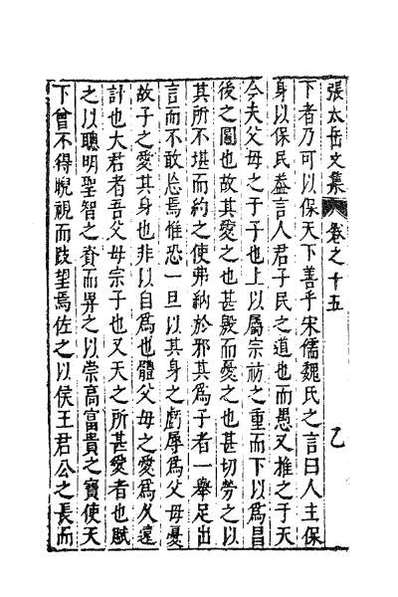 張太岳文集 卷之十五 乙
下者乃可以保天下善乎宋儒魏氏之言曰人主保
身以保民葢言人君子民之道也而愚又推之于天
今夫父母之于子也上以屬宗祊之重而下以爲昌
後之圖也故其愛之也甚殷而憂之也甚切勞之以
其所不堪而約之使弗納於邪其爲子者一舉足出
言而不敢忘焉惟恐一旦以其身之虧辱爲父母憂
故子之愛其身也非以自爲也體父母之愛爲久遠
計也大君者吾父母宗子也又天之所甚愛者也賦
之以聰明聖智之資而畀之以崇高富貴之寶使天
下曾不得睨視而跂望焉佐之以侯王君公之長而